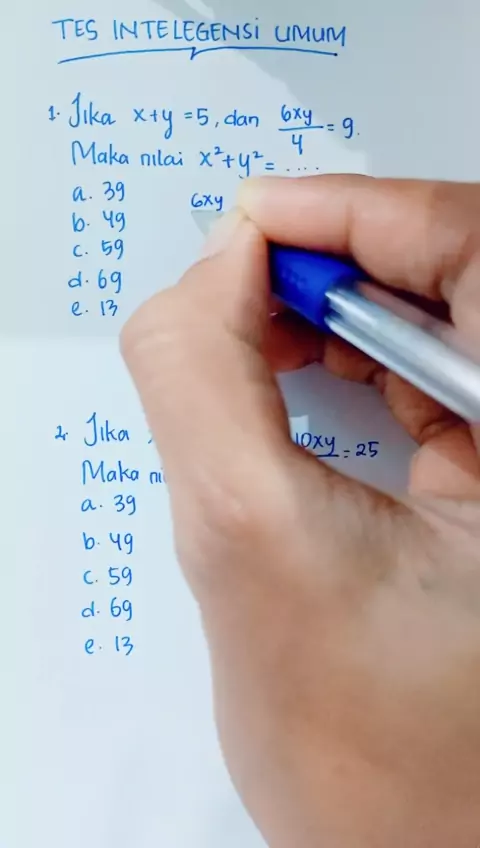 TES INTELEGENSI UMUM
1. Jika x+y = 5, dan 6xy/4 = 9.
Maka nilai x²+y² = ....
a. 39
6xy
b. 49
c. 59
d. 69
e. 13
2. Jika
10xy = 25
Maka
a. 39
b. 49
c. 59
d. 69
e. 13